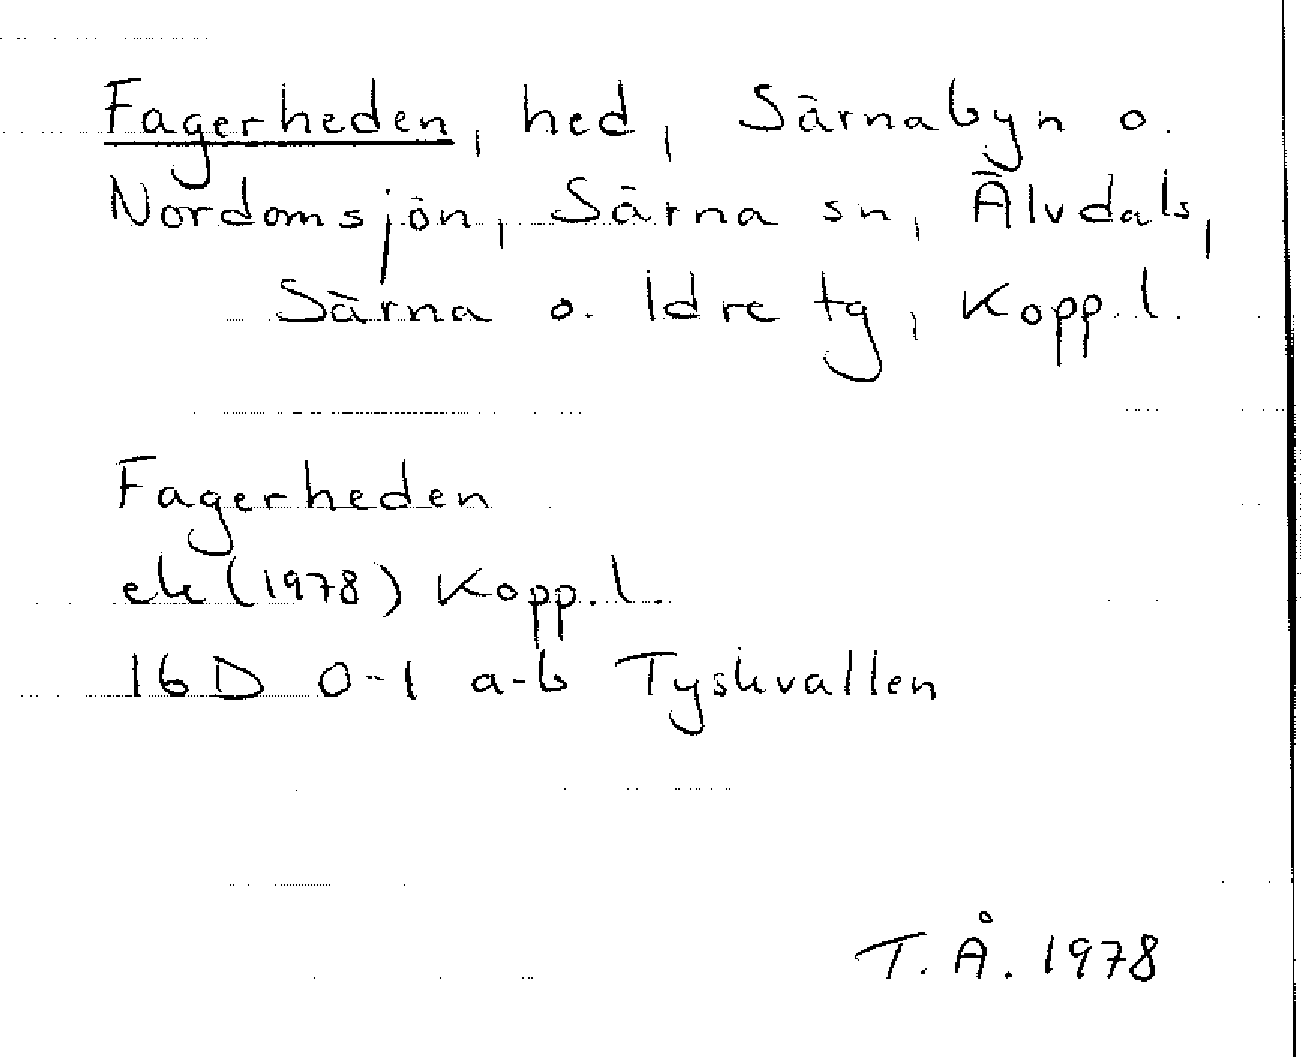 Fagerheden, hed, Särnabyn o.
Nordomsjön, Särna sn, Älvdals,
Särna o. Idre tg, Kopp. l.
Fagerheden
ek (1978) Kopp. l.
16 D 0-1 a-b Tyskvallen
T. Å. 1978